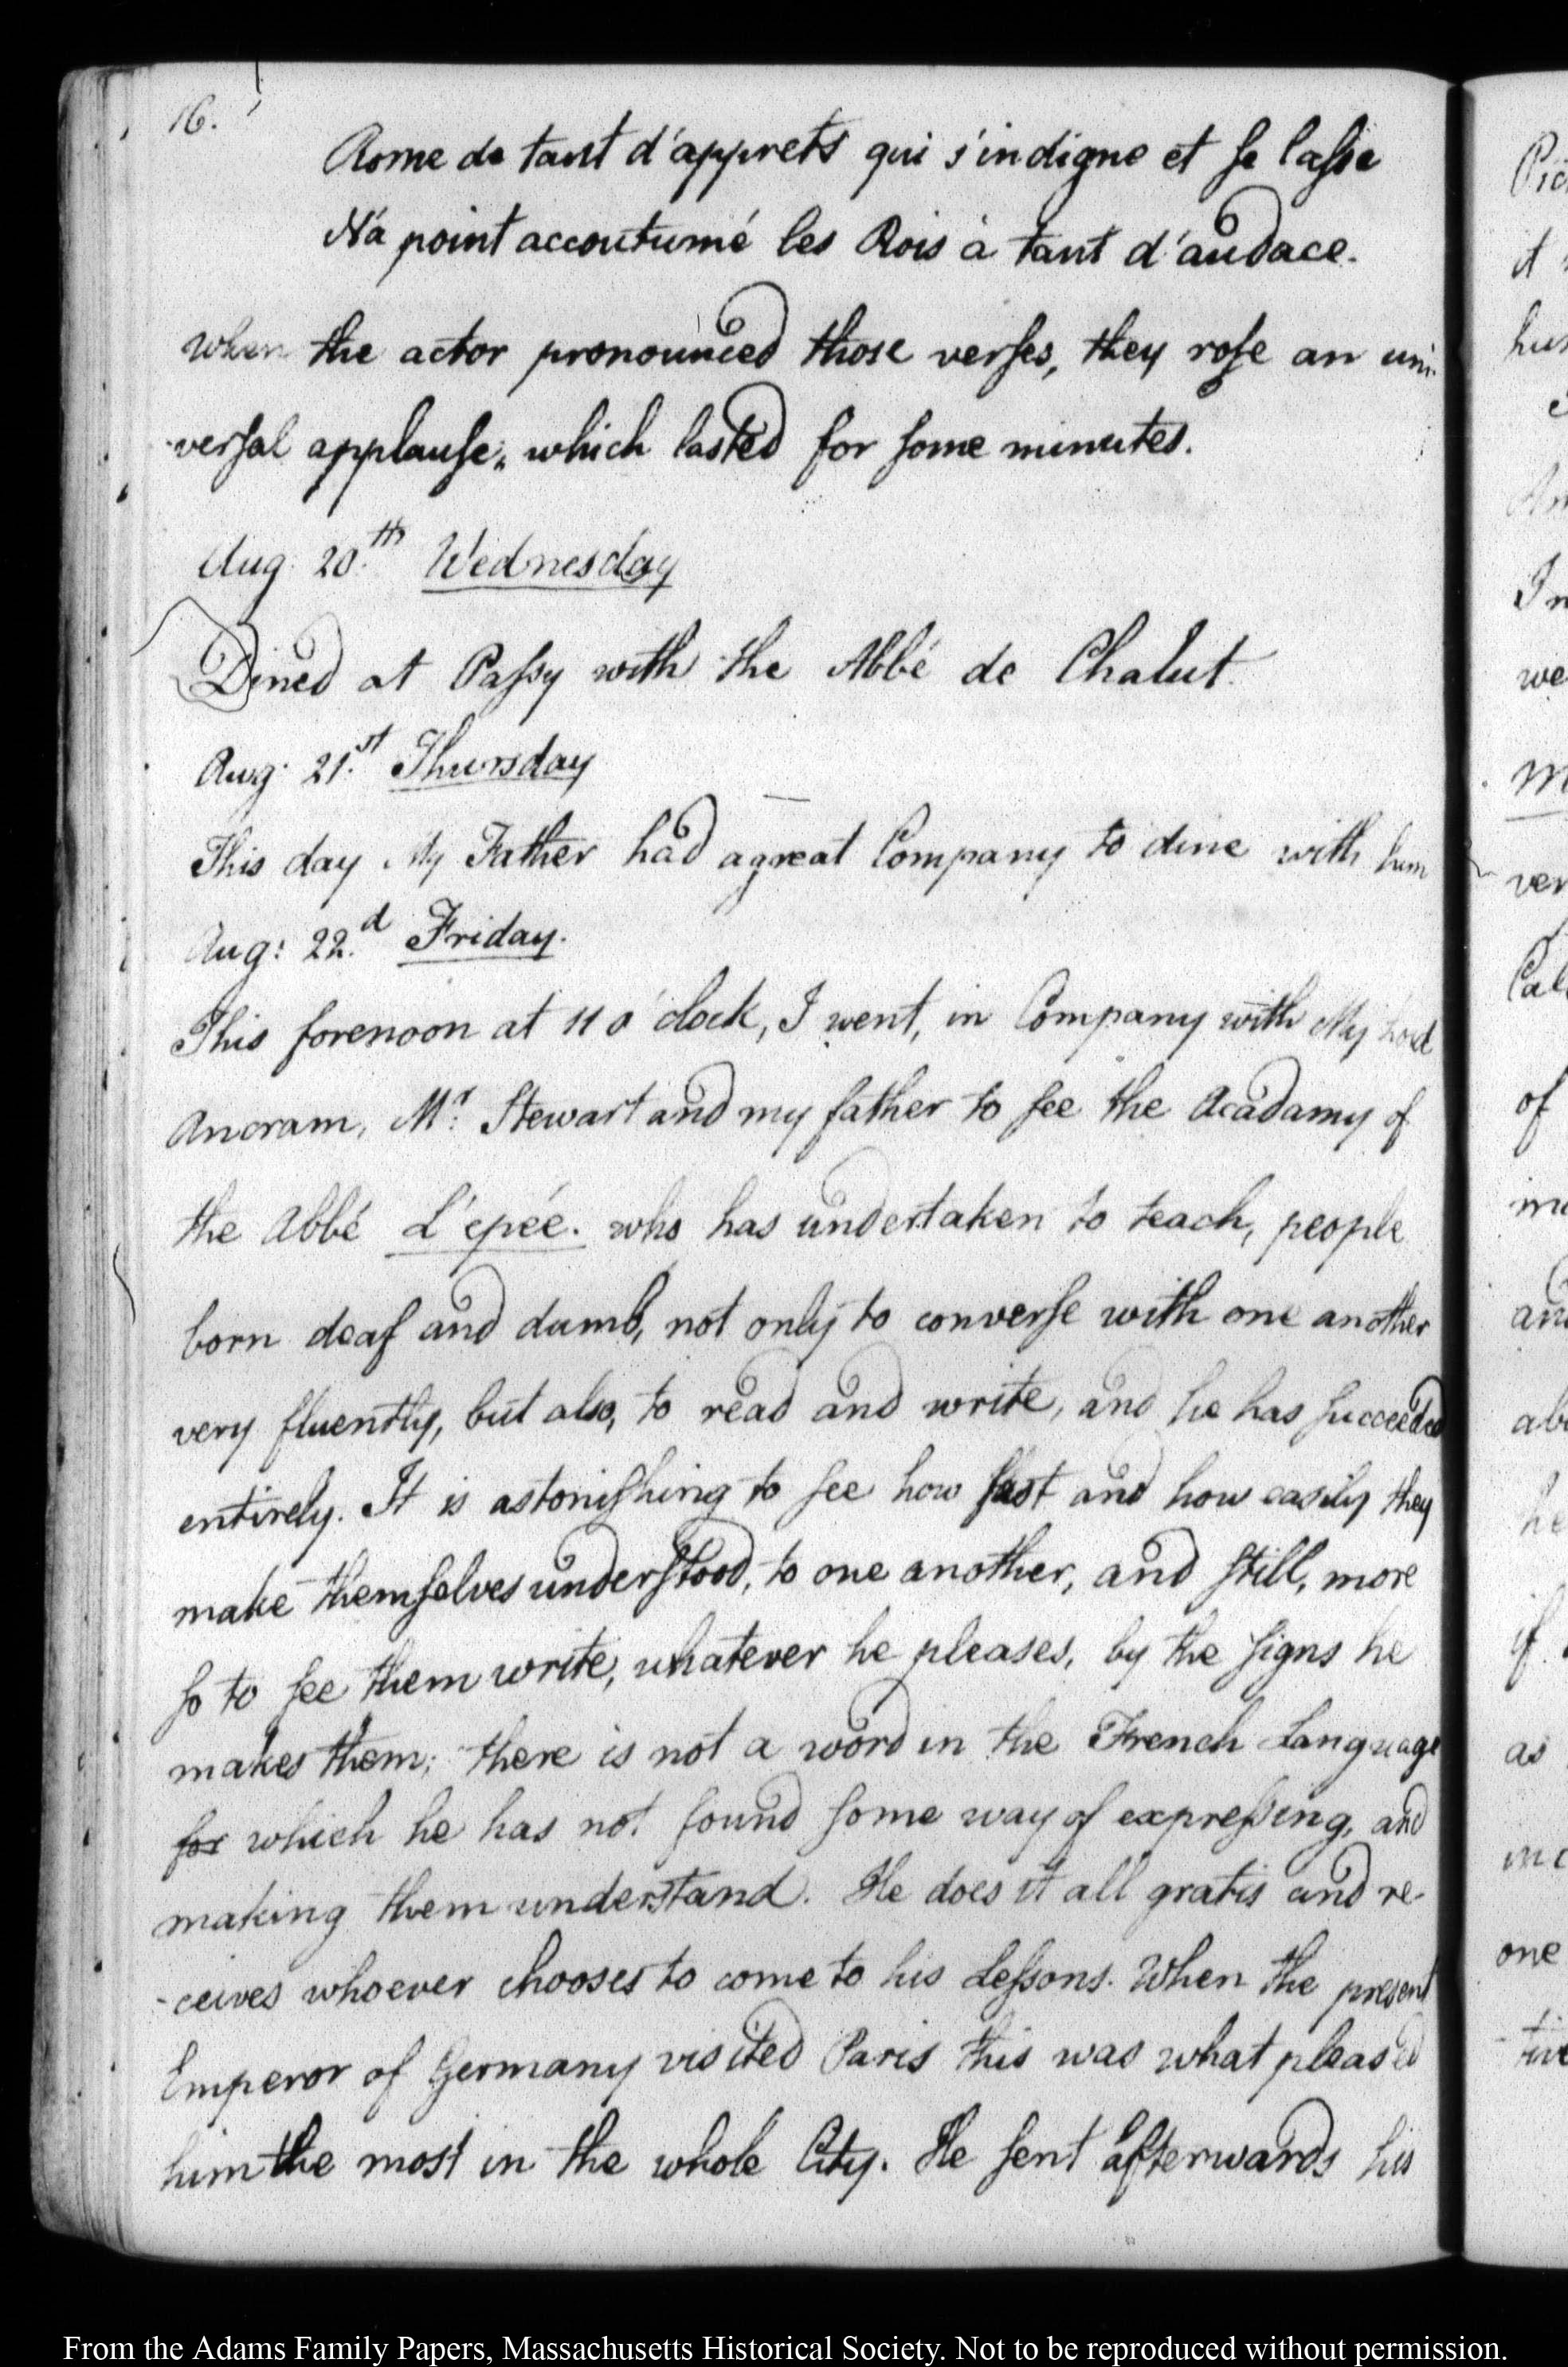 16.
Rome de tant d'apprets qui s'indigne et se lasse
N'a point accoutumé les Rois à tant d'audace.
when the actor pronounced those verses, they rose an uni-
-versal applause, which lasted for some minutes.
Aug: 20.th Wednesday
Dined at Passy with the Abbé de Chalut.
Aug: 21.st Thursday
This day My Father had a great Company to dine with him
Aug: 22.d Friday.
This forenoon at 11 o'clock, I went, in Company with My Lord
Ancram, Mr. Stewart and my father to see the Acadamy of
the Abbé L'épée. who has undertaken to teach, people
born deaf and dumb, not only to converse with one another
very fluently, but also, to read and write, and he has succeeded
entirely. It is astonishing to see how fast and how easily they
make themselves understood, to one another, and still, more
so to see them write, whatever he pleases, by the signs he
makes them; there is not a word in the French Language
for which he has not found some way of expressing, and
making them understand. He does it all gratis and re-
-ceives whoever chooses to come to his Lessons. When the present
Emperor of Germany visited Paris this was what pleased
him the most in the whole City. He sent afterwards his
it
we
ver
of
and
he
if
as
one
From the Adams Family Papers, Massachusetts Historical Society. Not to be reproduced without permission.